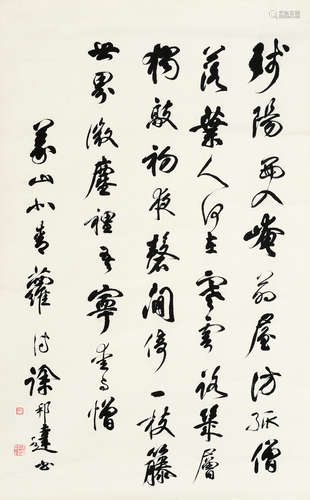 殘陽西入崦茅屋訪孤僧
落葉人何在寒雲路幾層
獨敲初夜磬閒倚一枝藤
世界微塵裡吾寧愛与憎
義山北青蘿詩 徐邦達書